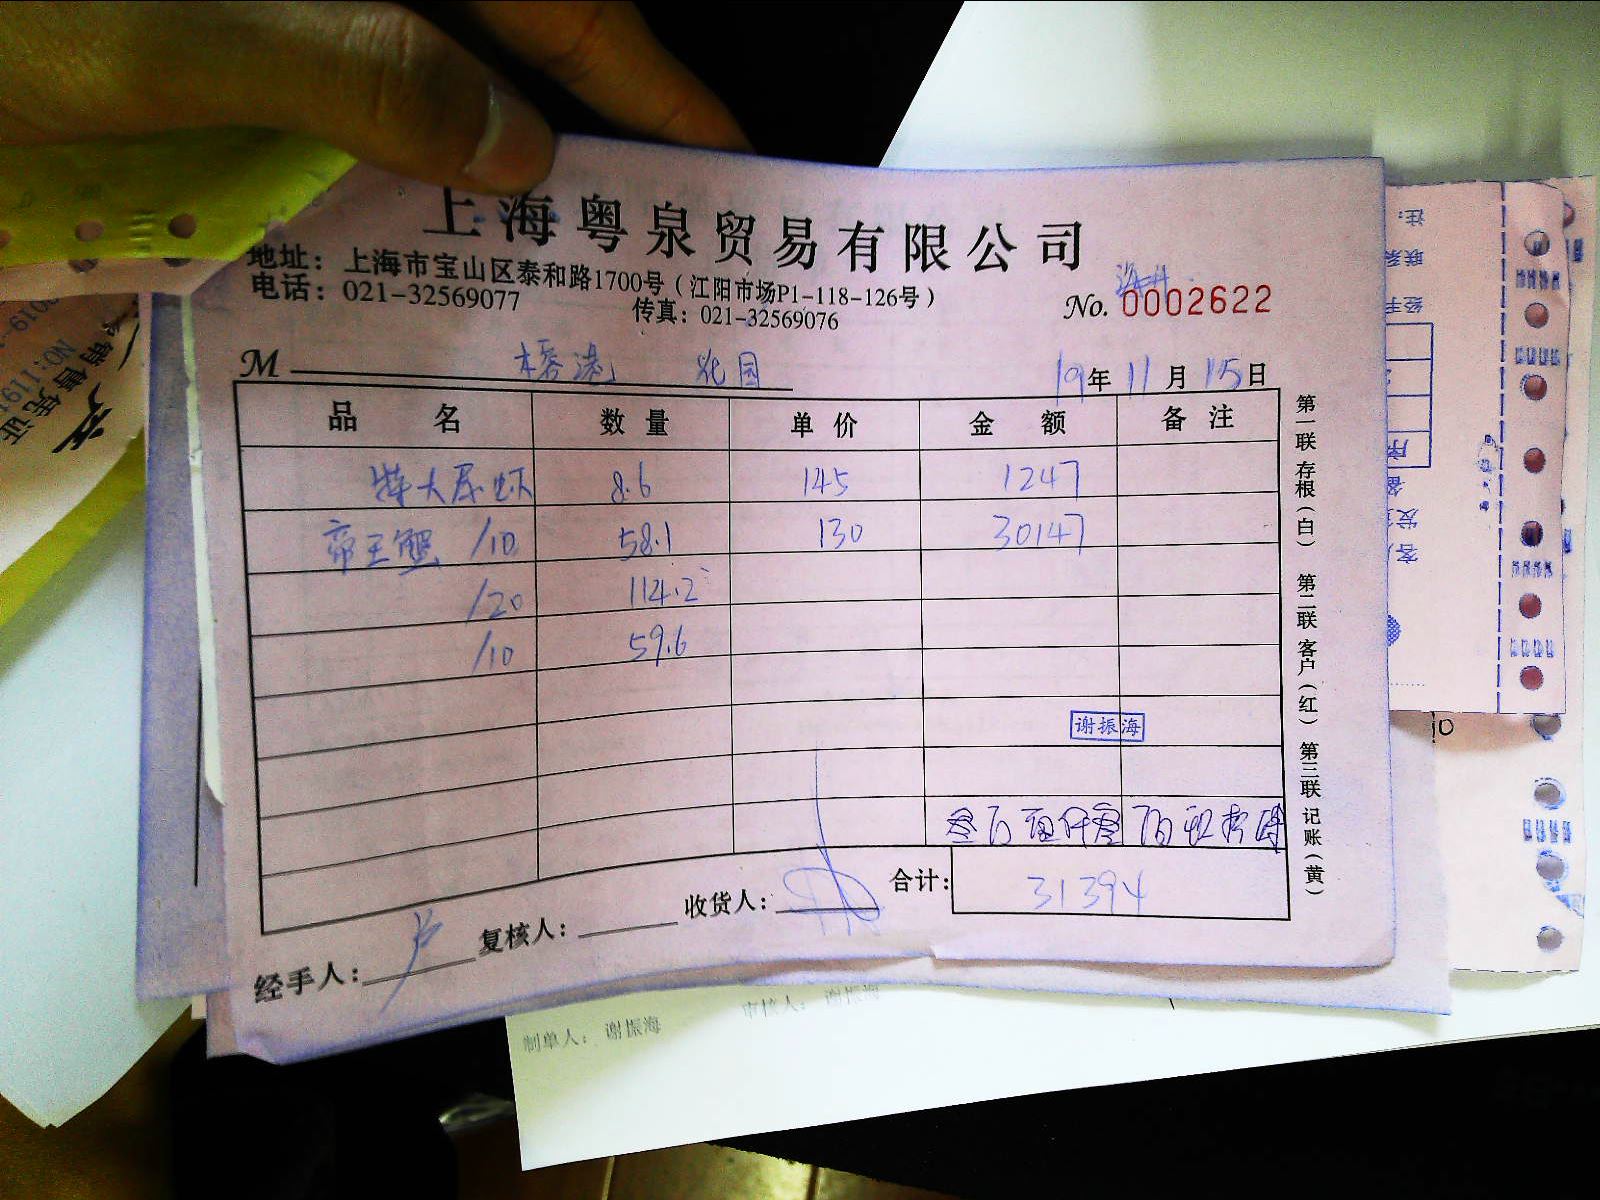 上海粤泉贸易有限公司
地址：上海市宝山区泰和路1700号（江阳市场P1-118-126号）
电话：021-32569077 传真：021-32569076
No. 0002622
M 花园 19年11月15日
品名 数量 单价 金额 备注
特大尿虾 8.6 145 1247
帝王蟹 /10 58.1 130 30147
/20 114.2
/10 59.6
谢振海
合计： 31394
经手人： 复核人： 收货人：
第一联 存根（白） 第二联 客户（红） 第三联 记账（黄）
制单人： 谢振海 审核人： 谢振海
销售凭证